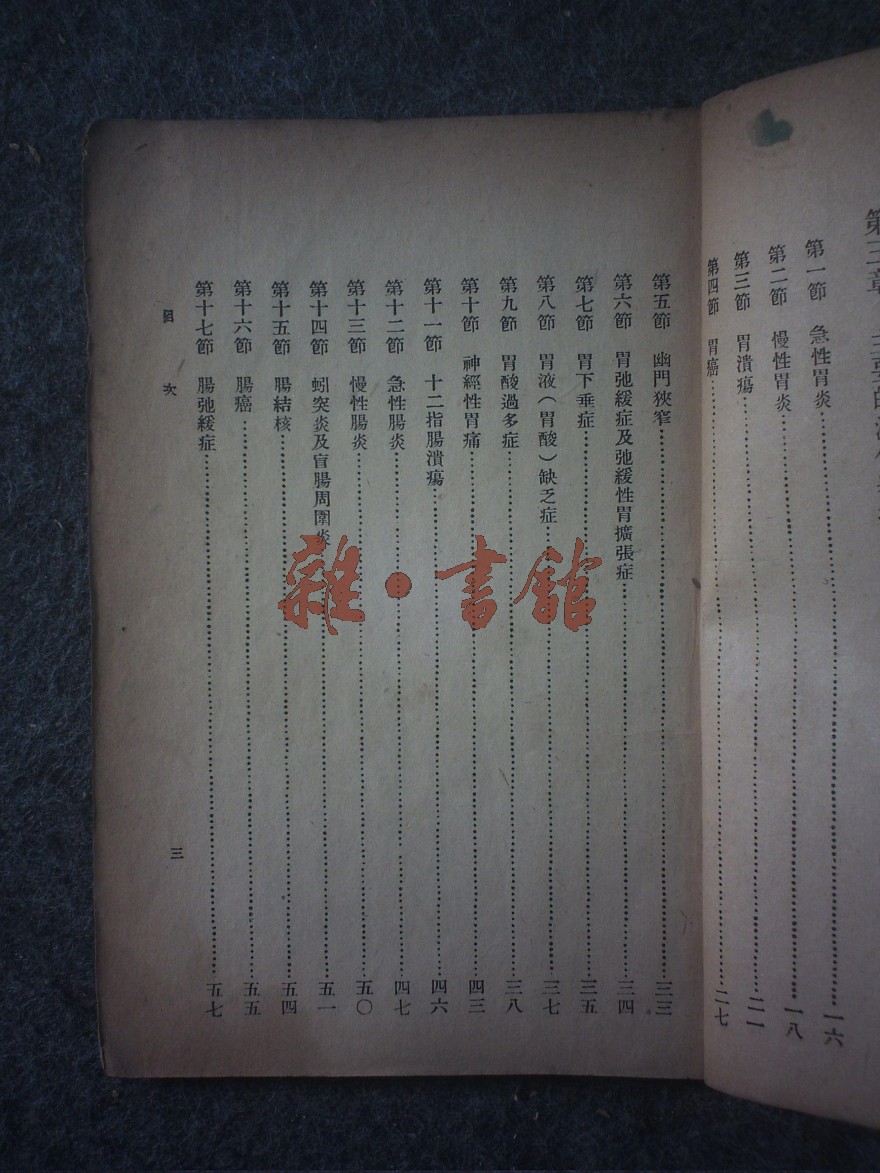 第一節　急性胃炎……一六
第二節　慢性胃炎……一八
第三節　胃潰瘍……二一
第四節　胃癌……二七
第五節　幽門狹窄……三三
第六節　胃弛緩症及弛緩性胃擴張症……三四
第七節　胃下垂症……三五
第八節　胃液（胃酸）缺乏症……三七
第九節　胃酸過多症……三八
第十節　神經性胃痛……四三
第十一節　十二指腸潰瘍……四六
第十二節　急性腸炎……四七
第十三節　慢性腸炎……五〇
第十四節　蚓突炎及盲腸周圍炎……五一
第十五節　腸結核……五四
第十六節　腸癌……五五
第十七節　腸弛緩症……五七
目　次　三
雜·書館